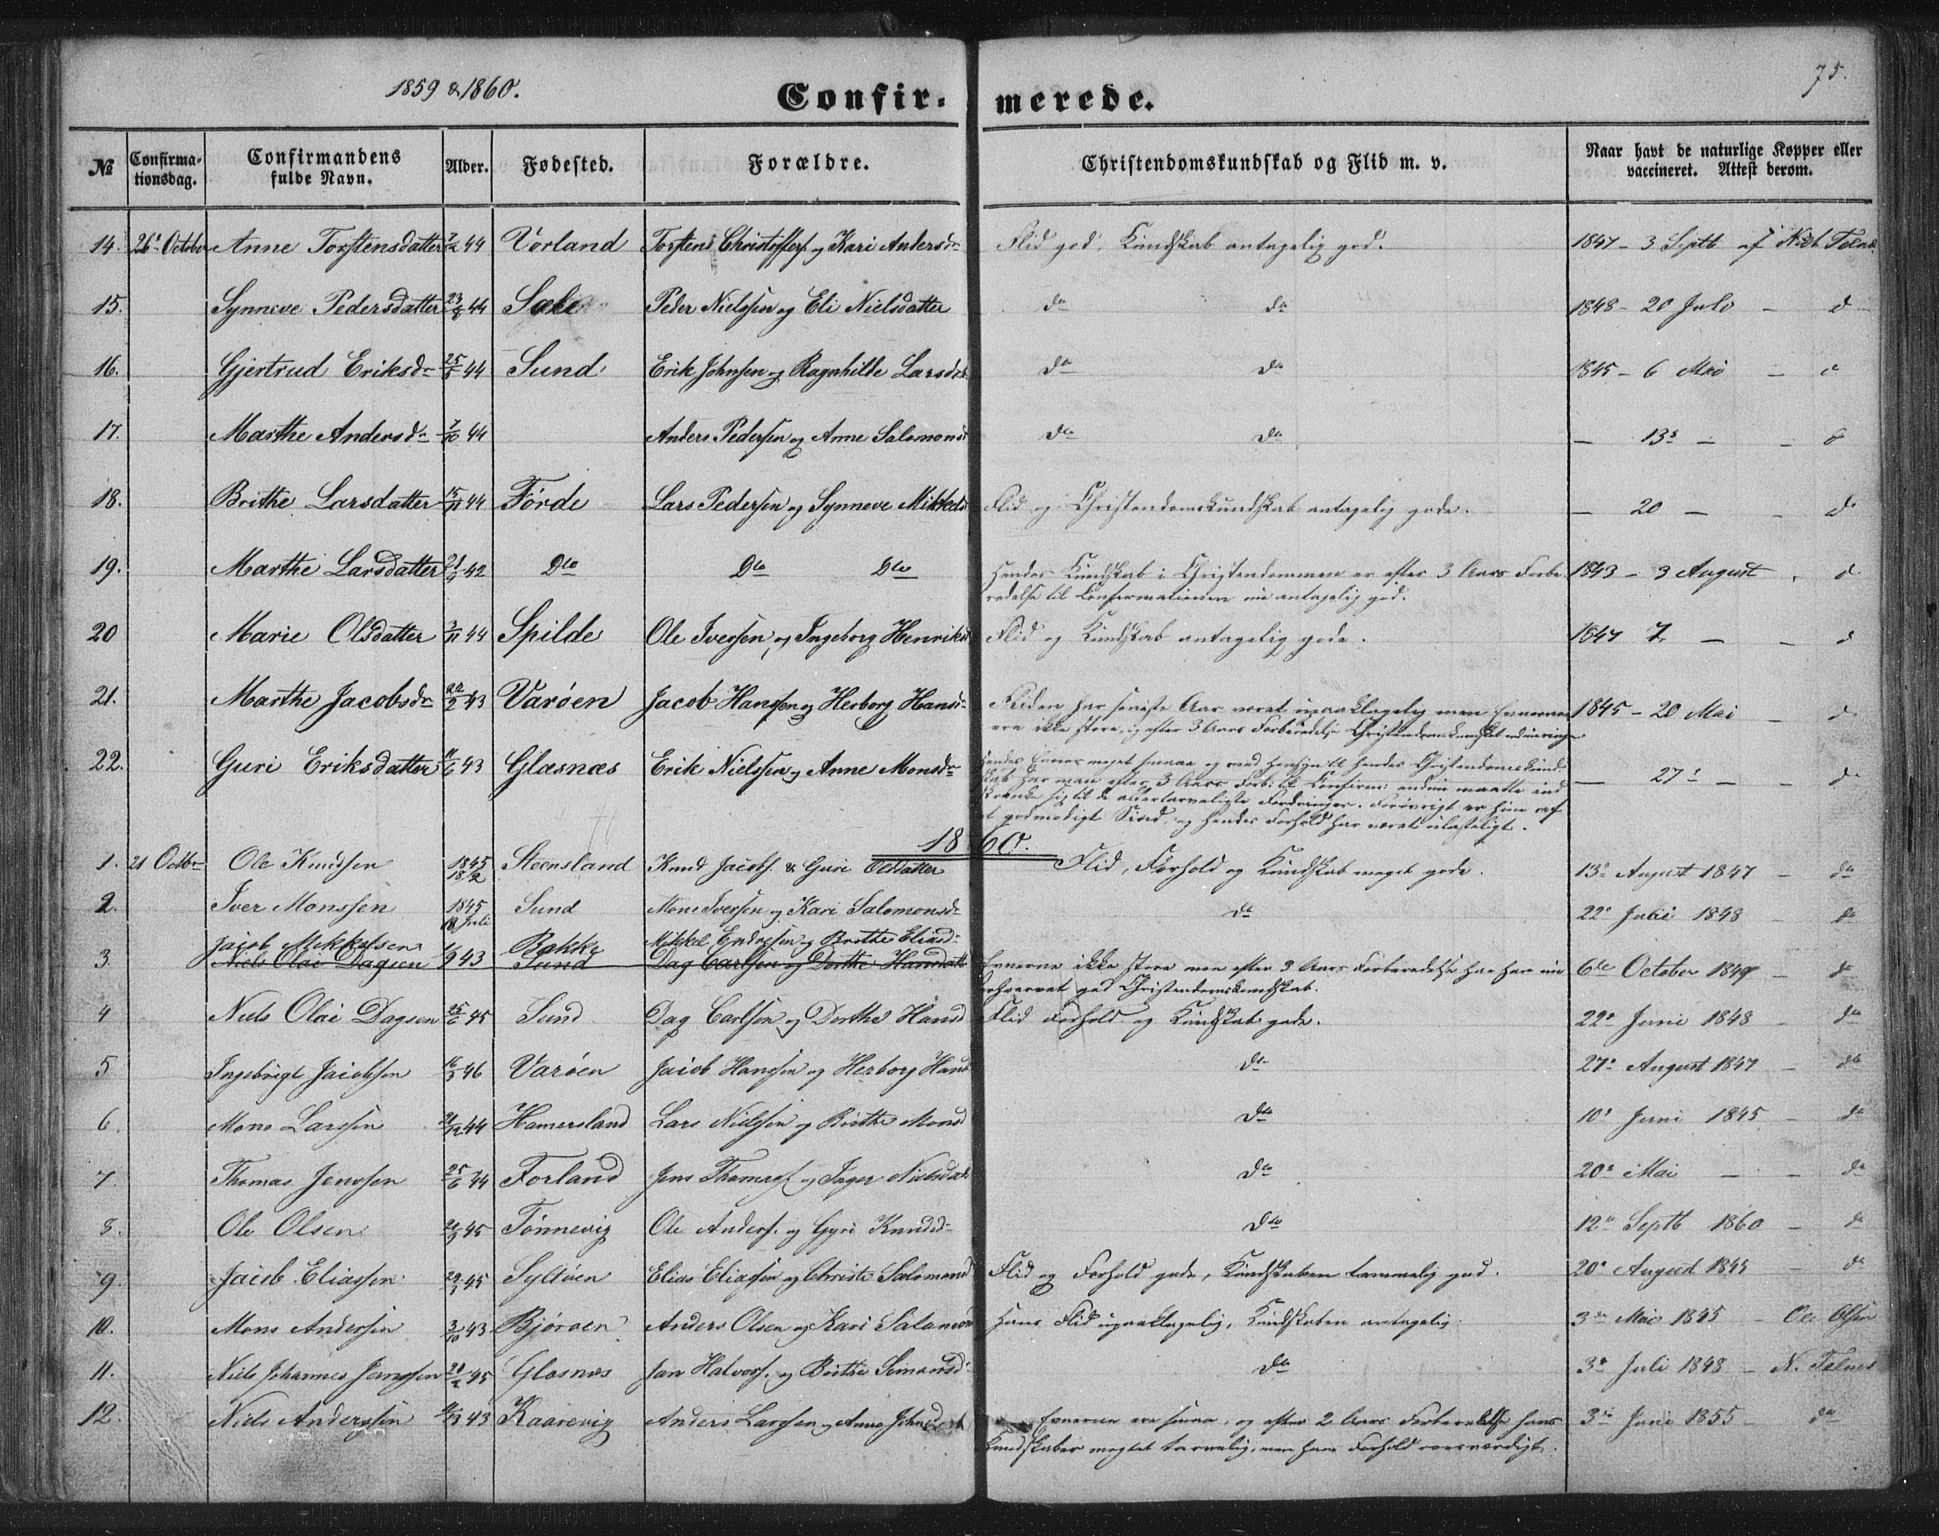 1859 & 1860.
75.
Confir- merede.
№ Confirma-tionsdag. Confirmandens fulde Navn. Alder. Fødested. Forældre. Christendomskundskab og Flid m. v. Naar havt de naturlige Kopper eller vaccineret. Attest derom.
14. 26' October Anne Torstensdatter 44 Vorland Torstens Christoffers. og Kari Andersd- Flid god, Kundskab antagelig god. 1847 - 3 Septb af
15. Synneve Pedersdatter 23/8 44 Peder Nielssen og Eli Nielsdatter do do 1848 - 20 Juli - d
16. Gjertrud Eriksd- 44 Sund Erik Johnsen og Ragnhilde Larsd do do 1845 - 6 Mai -
17. Marthe Andersd- 7/10 44 Anders Pedersen og Anne Salomonsd do do - 13' - -
18. Brithe Larsdatter 15/11 44 Førde Lars Pedersen og Synneve Mikkelsd Flid og Christendomskundskab antagelig gode. - 20 - - do
19. Marthe Larsdatter 42 Dto Dto Dto Hendes Kundskab i Christendommen er efter 3 Aars Forbe
redelse til Confirmationen nu antagelig god. 1843 - 3 August - d
20 Marie Olsdatter 44 Spilde Ole Iverssen og Ingeborg Henriksd Flid og Kundskab antagelig gode. 1847 7 - - d
21. Marthe Jacobsd- 43 Varöen Jacob Hanssen og Herborg Hansd- Fliden har seneste Aar været upaaklagelig men Evnerne
ere ikke store, og efter 3 Aars Forberedelse Christendomskundskab 1845 - 20 Mai - d
22. Guri Eriksdatter 43 Glasnæs Erik Nielssen og Anne Monsd- Hendes Evner meget smaae og med Hensyn til hendes Christendomskund
skab har man efter 3 Aars Forb: til Confirm: endnu maatte ind
skrænke sig til de allertarveligste Fordringer. Forøvrigt er hun af
et godmodigt Sind, og hendes Forhold har været ulasteligt. - 27' - d
1860.
1. 21 Octbr Ole Knudsen 1845 18/2 Steensland Knud Jacobs. & Guri Flid, Forhold og Kundskab meget gode. 13' August 1847 - do
2. Iver Monssen 1845 18 Juli Sund Mons Iverssen og Kari Salomonsd- do 22' Juli 1848 - do
3. Jacob Mikkelsen 43 Bakke Mikkel Endresen og Brithe Eliasd-
Niels Olai Dagsen Sund Dag Carlsen og Dorthe Hansdatt Evnerne ikke store men efter 3 Aars Forberedelse har han nu
erhvervet god Christendomskundskab. 6te October 1844 - do
4 Niels Olai Dagsen 45 Sund Dag Carlssen og Dorthe Hansd Flid Forhold og Kundskab gode. 22' Juni 1848 - do
5 Ingebrigt Jacobsen 46 Varöen Jacob Hanssen og Herborg Hansd do 27' August 1847 - do
6. Mons Larssen 44 Hamersland Lars Nielssen og Brithe Monsd do 10' Juni 1845 - do
7. Thomas Jenssen 25/6 44 Forland Jens Thomass. og Inger Nielsdatt do 20' Mai - - do
8. Ole Olsen 45 Tönnevig Ole Anders. og Gyri Knudsd- do 12' Septb 1860 - do
9. Jacob Eliassen 45 Syltöen Elias Eliassen og Christi Salomonsd Flid og Forhold gode, Kundskaben temmelig god. 20' August 1845 - do
10. Mons Anderssen 3/10 43 Björoen Anders Olsen og Kari Salamons Hans Flid upaaklagelig, Kundskaben antagelig. 3' Mai 1845 - Ole Olsen
11. Niels Johannes Janssen 45 Glasnæs Jan Halvors. og Brithe Simonsd- do 3' Juli 1848 - N. Telnes
12. Niels Anderssen 43 Kaarevig Anders Larssen og Anna Johnsd Evnerne ere smaa, og efter 2 Aars Forberedelse hans
Kundskaber meget tarvelig, men hans Forhold roesværdigt. 3' Juni 1855 - do